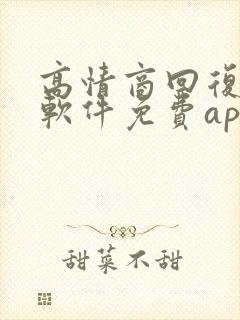 高情商回復
軟件免費ap
甜菜不甜